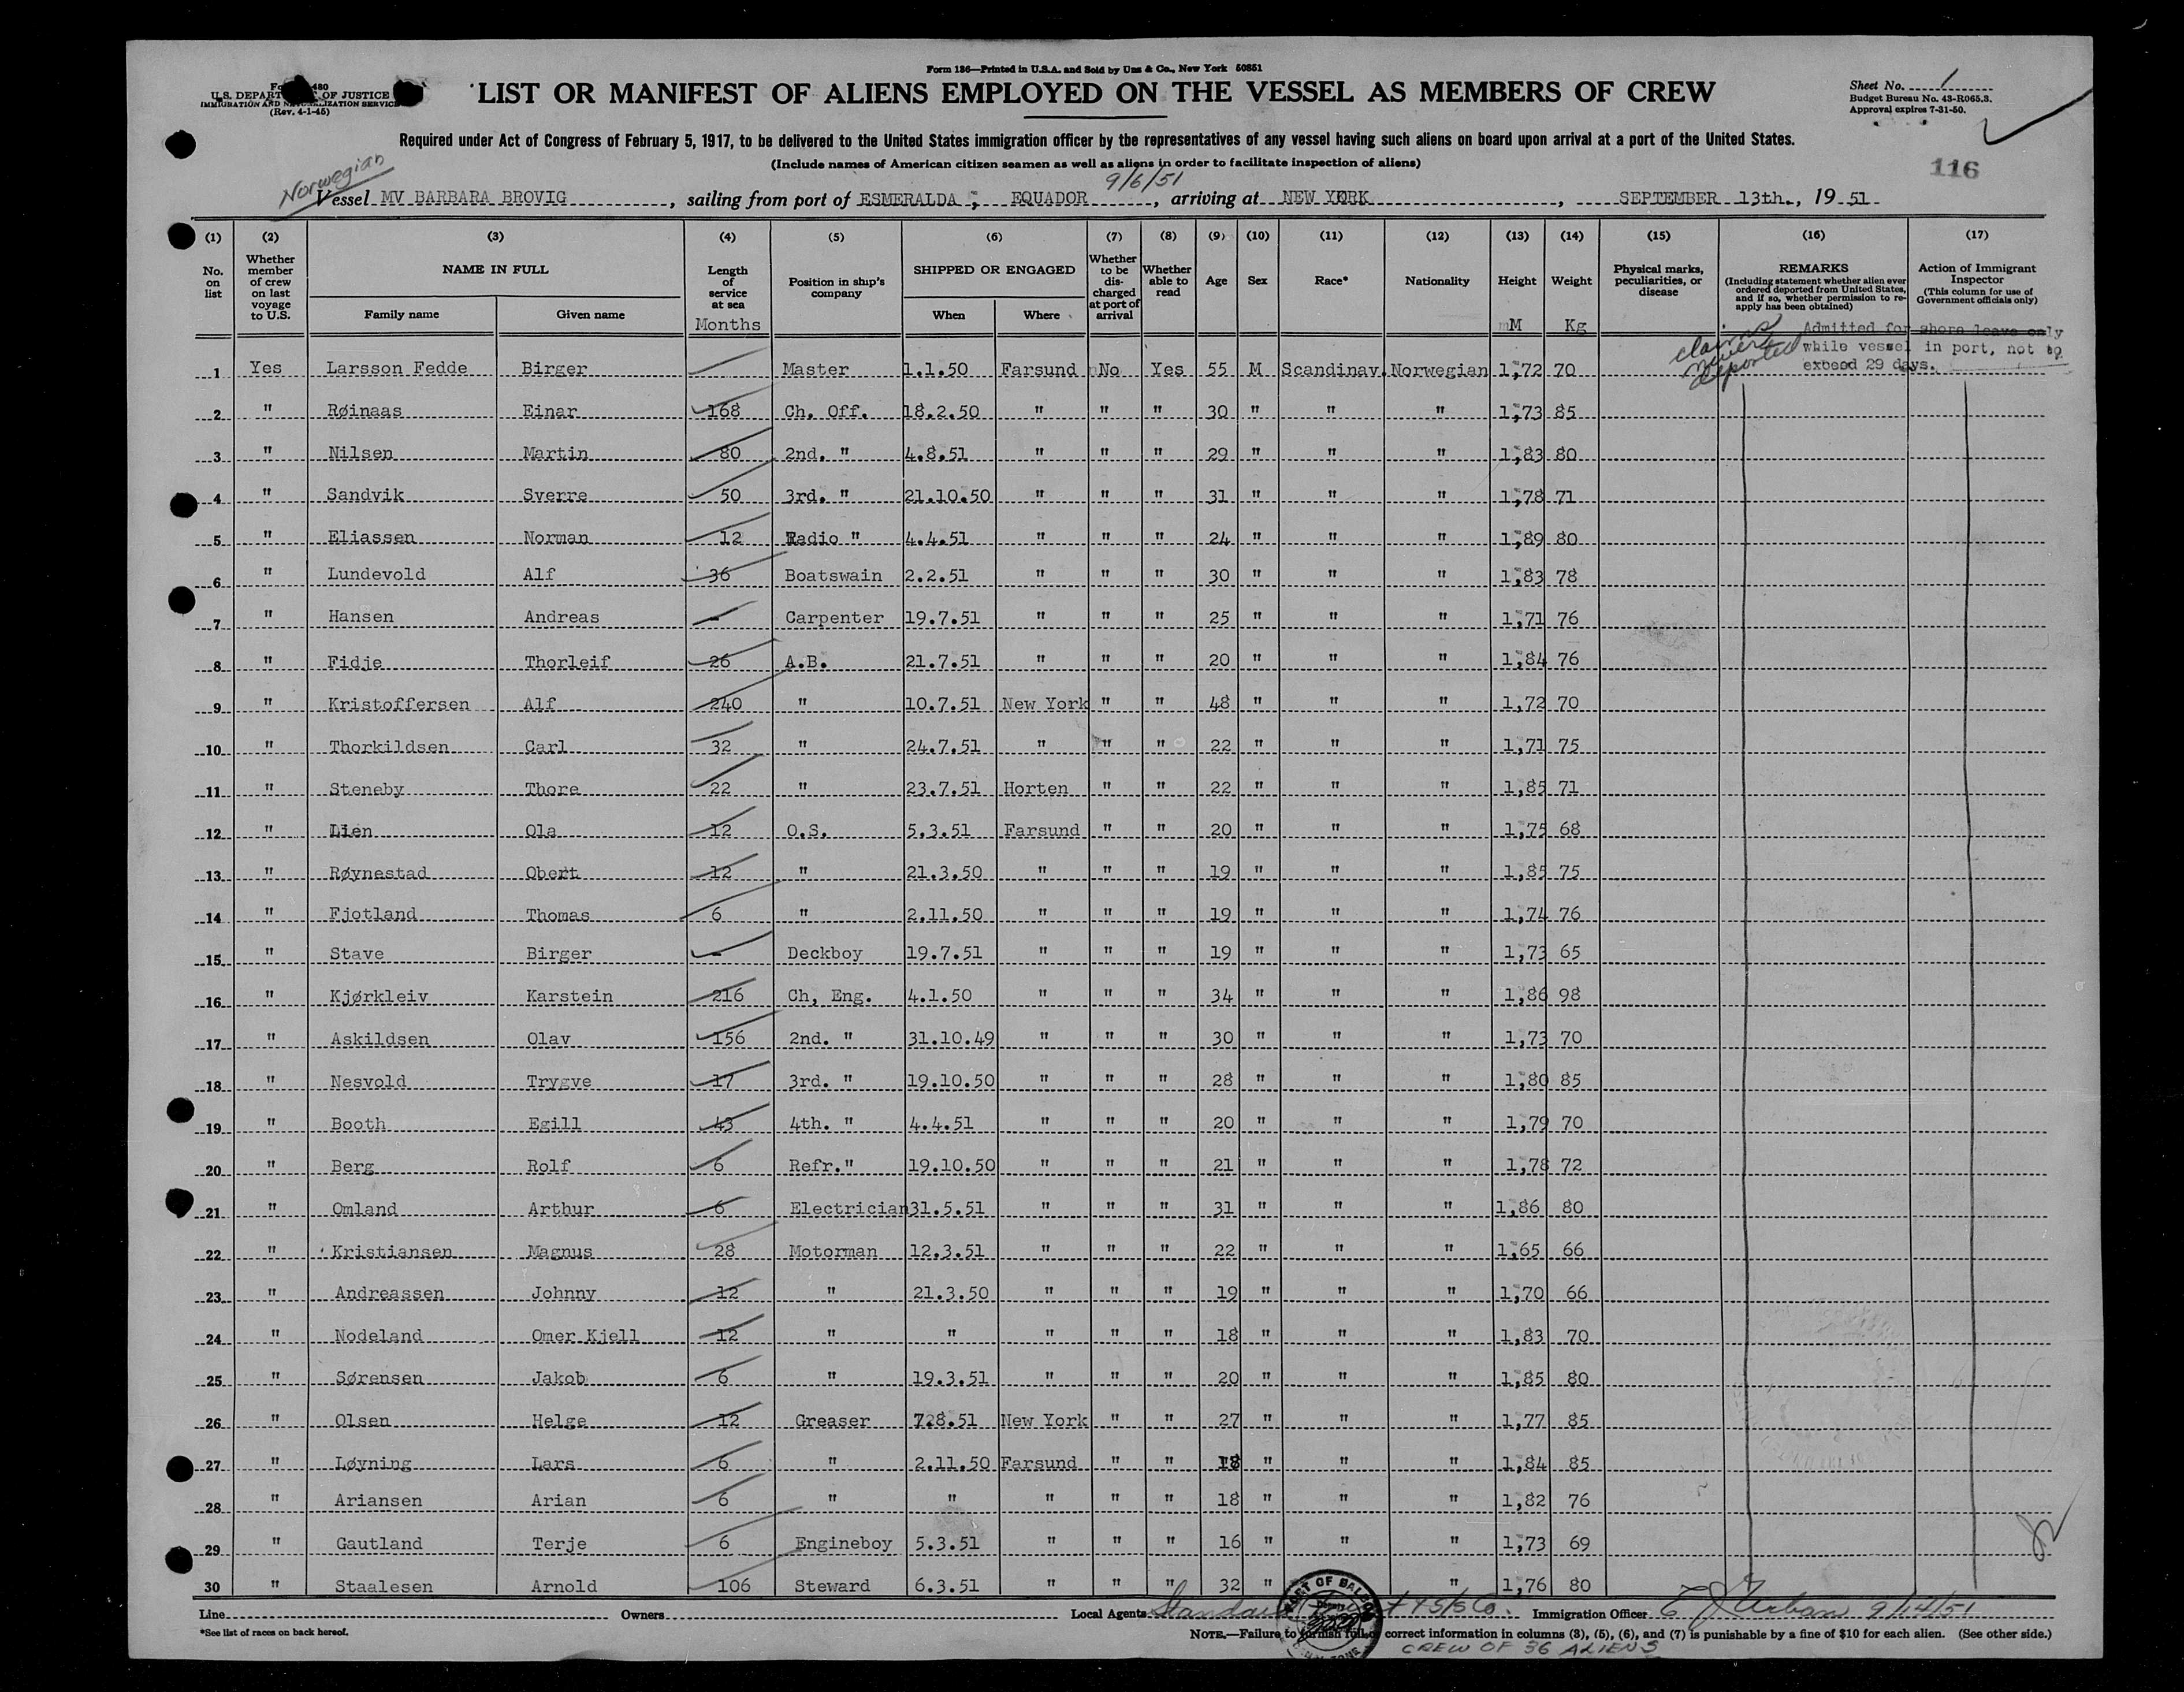 Form 136—Printed in U.S.A. and Sold by Unz & Co., New York 50851
480
U.S. DEPART OF JUSTICE
IMMIGRATION AND NATURALIZATION SERVICE
(Rev. 4-1-45)
LIST OR MANIFEST OF ALIENS EMPLOYED ON THE VESSEL AS MEMBERS OF CREW
Sheet No. 1
Budget Bureau No. 43-R065.3.
Approval expires 7-31-50.
Required under Act of Congress of February 5, 1917, to be delivered to the United States immigration officer by the representatives of any vessel having such aliens on board upon arrival at a port of the United States.
(Include names of American citizen seamen as well as aliens in order to facilitate inspection of aliens)
116
Norwegian
9/6/51
Vessel MV BARBARA BROVIG, sailing from port of ESMERALDA; EQUADOR, arriving at NEW YORK, SEPTEMBER 13th., 19 51
(1) (2) (3) (4) (5) (6) (7) (8) (9) (10) (11) (12) (13) (14) (15) (16) (17)
No. on list
Whether member of crew on last voyage to U.S.
NAME IN FULL
Family name Given name
Length of service at sea
Months
Position in ship's company
SHIPPED OR ENGAGED
When Where
Whether to be discharged at port of arrival
Whether able to read
Age
Sex
Race*
Nationality
Height
M
Weight
Kg
Physical marks, peculiarities, or disease
REMARKS
(Including statement whether alien ever ordered deported from United States, and if so, whether permission to reapply has been obtained)
Action of Immigrant Inspector
(This column for use of Government officials only)
claims never deported
Admitted for shore leave only
while vessel in port, not to
exbeod 29 days.
1 Yes Larsson Fedde Birger Master 1.1.50 Farsund No Yes 55 M Scandinav. Norwegian 1,72 70
2 " Røinaas Einar 168 Ch. Off. 18.2.50 " " " 30 " " " 1,73 85
3 " Nilsen Martin 80 2nd. " 4.8.51 " " " 29 " " " 1,83 80
4 " Sandvik Sverre 50 3rd. " 21.10.50 " " " 31 " " " 1,78 71
5 " Eliassen Norman 12 Radio " 4.4.51 " " " 24 " " " 1,89 80
6 " Lundevold Alf 36 Boatswain 2.2.51 " " " 30 " " " 1,83 78
7 " Hansen Andreas - Carpenter 19.7.51 " " " 25 " " " 1,71 76
8 " Fidje Thorleif 26 A.B. 21.7.51 " " " 20 " " " 1,84 76
9 " Kristoffersen Alf 240 " 10.7.51 New York " " 48 " " " 1,72 70
10 " Thorkildsen Carl 32 " 24.7.51 " " " 22 " " " 1,71 75
11 " Steneby Thore 22 " 23.7.51 Horten " " 22 " " " 1,85 71
12 " Lien Ola 12 O.S. 5.3.51 Farsund " " 20 " " " 1,75 68
13 " Røynestad Obert 12 " 21.3.50 " " " 19 " " " 1,85 75
14 " Fjotland Thomas 6 " 2.11.50 " " " 19 " " " 1,74 76
15 " Stave Birger - Deckboy 19.7.51 " " " 19 " " " 1,73 65
16 " Kjørkleiv Karstein 216 Ch, Eng. 4.1.50 " " " 34 " " " 1,86 98
17 " Askildsen Olav 156 2nd. " 31.10.49 " " " 30 " " " 1,73 70
18 " Nesvold Trygve 17 3rd. " 19.10.50 " " " 28 " " " 1,80 85
19 " Booth Egill 43 4th. " 4.4.51 " " " 20 " " " 1,79 70
20 " Berg Rolf 6 Refr." 19.10.50 " " " 21 " " " 1,78 72
21 " Omland Arthur 6 Electrician 31.5.51 " " " 31 " " " 1,86 80
22 " Kristiansen Magnus 28 Motorman 12.3.51 " " " 22 " " " 1,65 66
23 " Andreassen Johnny 12 " 21.3.50 " " " 19 " " " 1,70 66
24 " Nodeland Omer Kjell 12 " " " " " 18 " " " 1,83 70
25 " Sørensen Jakob 6 " 19.3.51 " " " 20 " " " 1,85 80
26 " Olsen Helge 12 Greaser 728.51 New York " " 27 " " " 1,77 85
27 " Løyning Lars 6 " 2.11.50 Farsund " " 18 " " " 1,84 85
28 " Ariansen Arian 6 " " " " " 18 " " " 1,82 76
29 " Gautland Terje 6 Engineboy 5.3.51 " " " 16 " " " 1,73 69
30 " Staalesen Arnold 106 Steward 6.3.51 " " " 32 " " 1,76 80
Line Owners Local Agents Standard Immigration Officer E J Urban 9/14/51
*See list of races on back hereof.
NOTE.—Failure to furnish full or correct information in columns (3), (5), (6), and (7) is punishable by a fine of $10 for each alien. (See other side.)
CREW OF 36 ALIENS